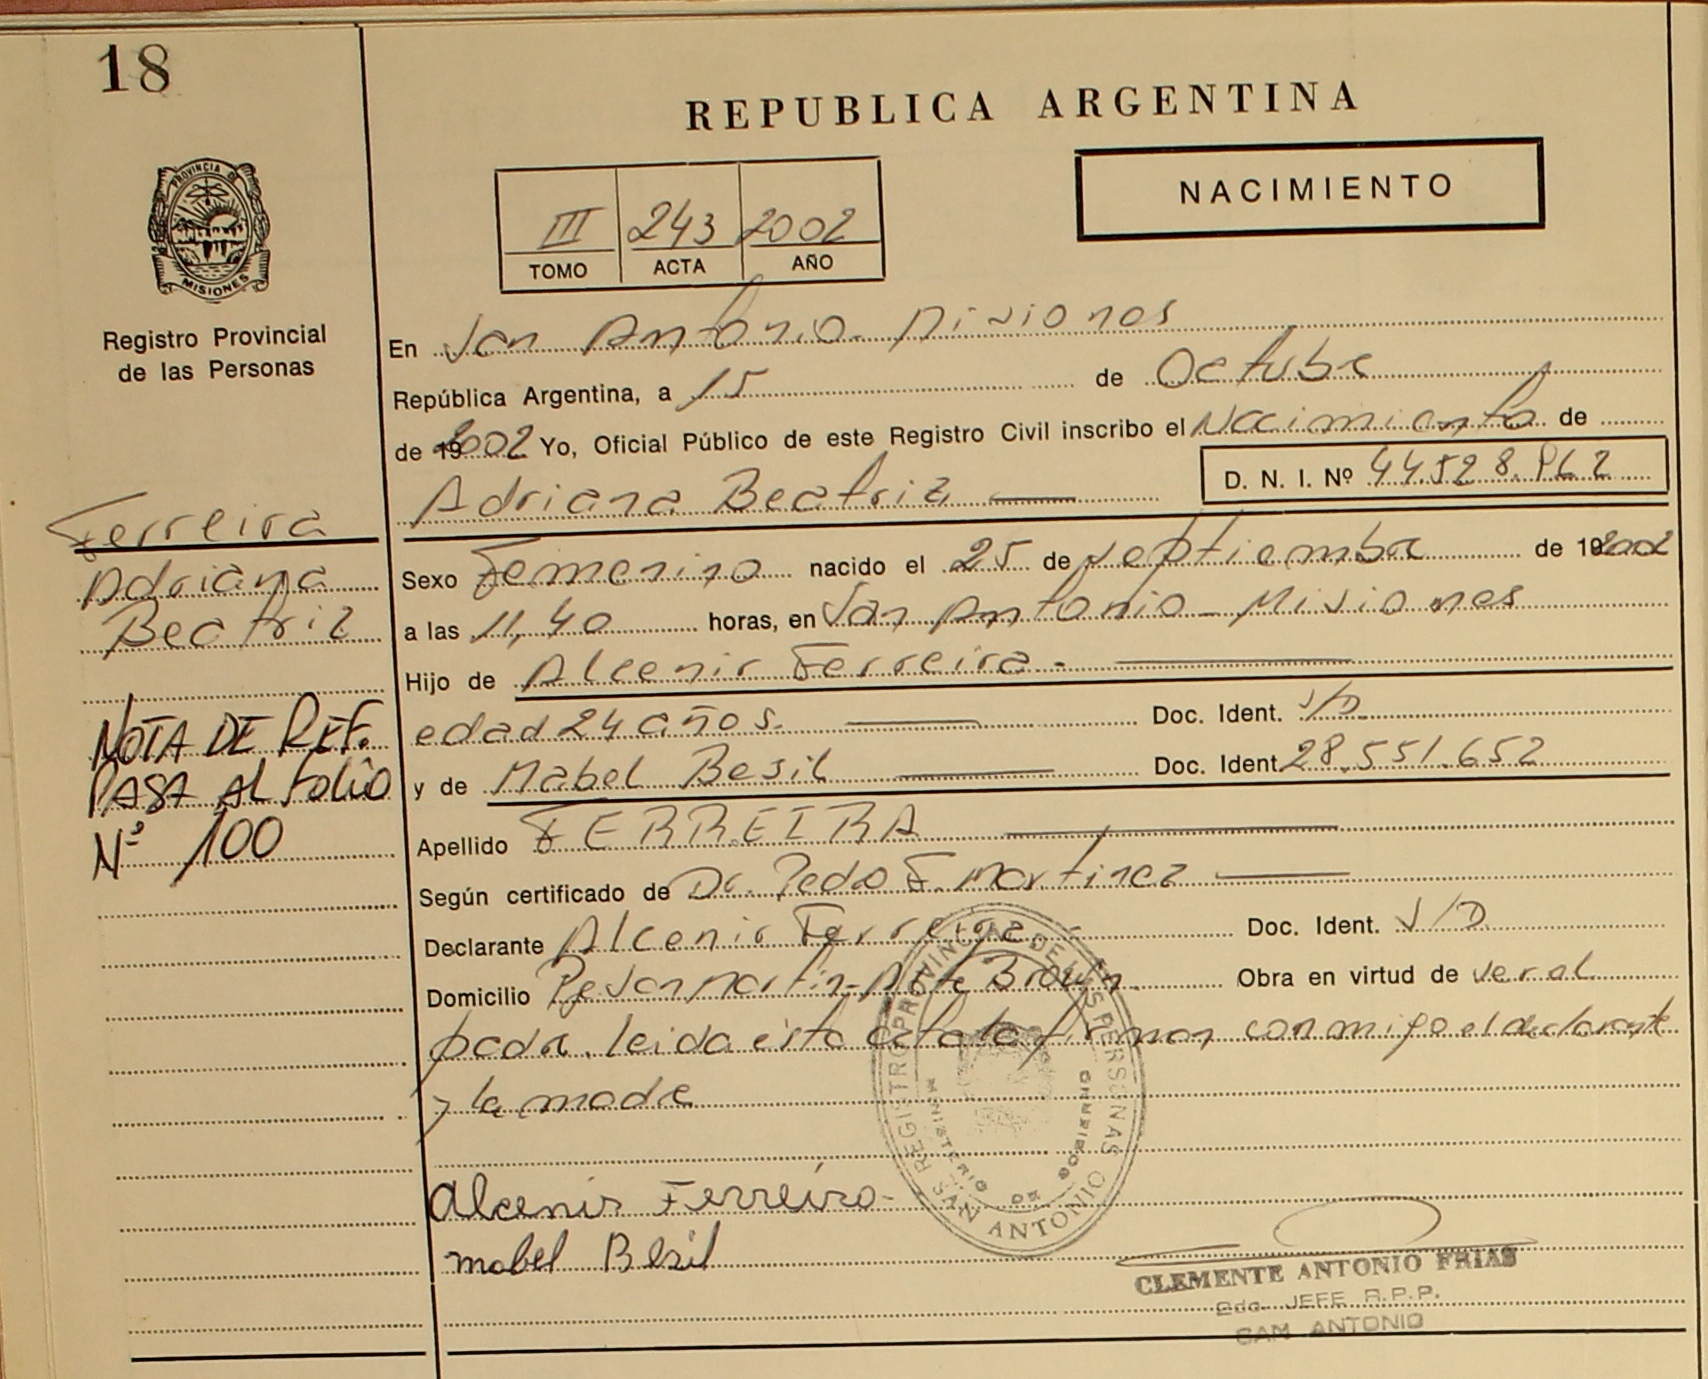 18
REPUBLICA ARGENTINA
NACIMIENTO
III 243 2002
TOMO ACTA AÑO
PROVINCIA D
MISIONES
Registro Provincial
de las Personas
En San Antonio - Misiones
República Argentina, a 15 de Octubre
de 192002 Yo, Oficial Público de este Registro Civil inscribo el Nacimiento de
Adriana Beatriz
D. N. I. Nº 44.528.
Ferreira
Adriana
Beatriz
Sexo Femenino nacido el 25 de Septiembre de 192002
a las 11,40 horas, en San Antonio - Misiones
Hijo de Alcenir Ferreira -
edad 24 años. Doc. Ident. S/D.
y de Mabel Besil Doc. Ident. 28.551.652
NOTA DE REF.
PASA AL FOLIO
Nº 100
Apellido FERREIRA
Según certificado de Dr. Pedro F. Martinez
Declarante Alcenir Ferreira - Doc. Ident. S/D
Domicilio San Martin - Brown. Obra en virtud de ser el
padre. leida esta acta la firman conmigo el declarante
y la madre
REGISTRO PROVINCIAL DE LAS PERSONAS
MINISTERIO DE GOBIERNO
SAN ANTONIO
Alcenir Ferreira -
mabel Besil
CLEMENTE ANTONIO FRIAS
JEFE R.P.P.
SAN ANTONIO